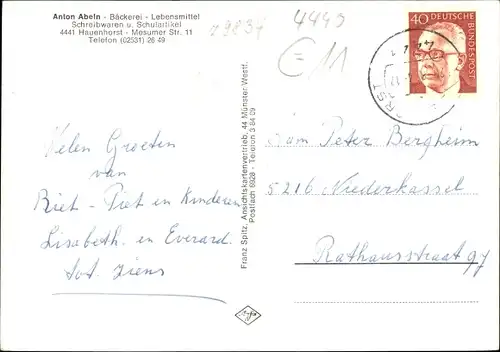 Anton Abeln - Bäckerei - Lebensmittel
Schreibwaren u. Schulartikel
4441 Hauenhorst - Mesumer Str. 11
Telefon (02531) 26 49
29834
4449
€11
40 DEUTSCHE BUNDESPOST
Velen Groeten
van
Riet - Piet en Kinderen
Lisabeth. en Everard.
tot ziens
Franz Spitz, Ansichtskartenvertrieb, 44 Münster Westf.
Postfach 6928 - Telefon 3 84 09
Fam Peter Bergheim
5216 Niederkassel
Rathausstraat 97